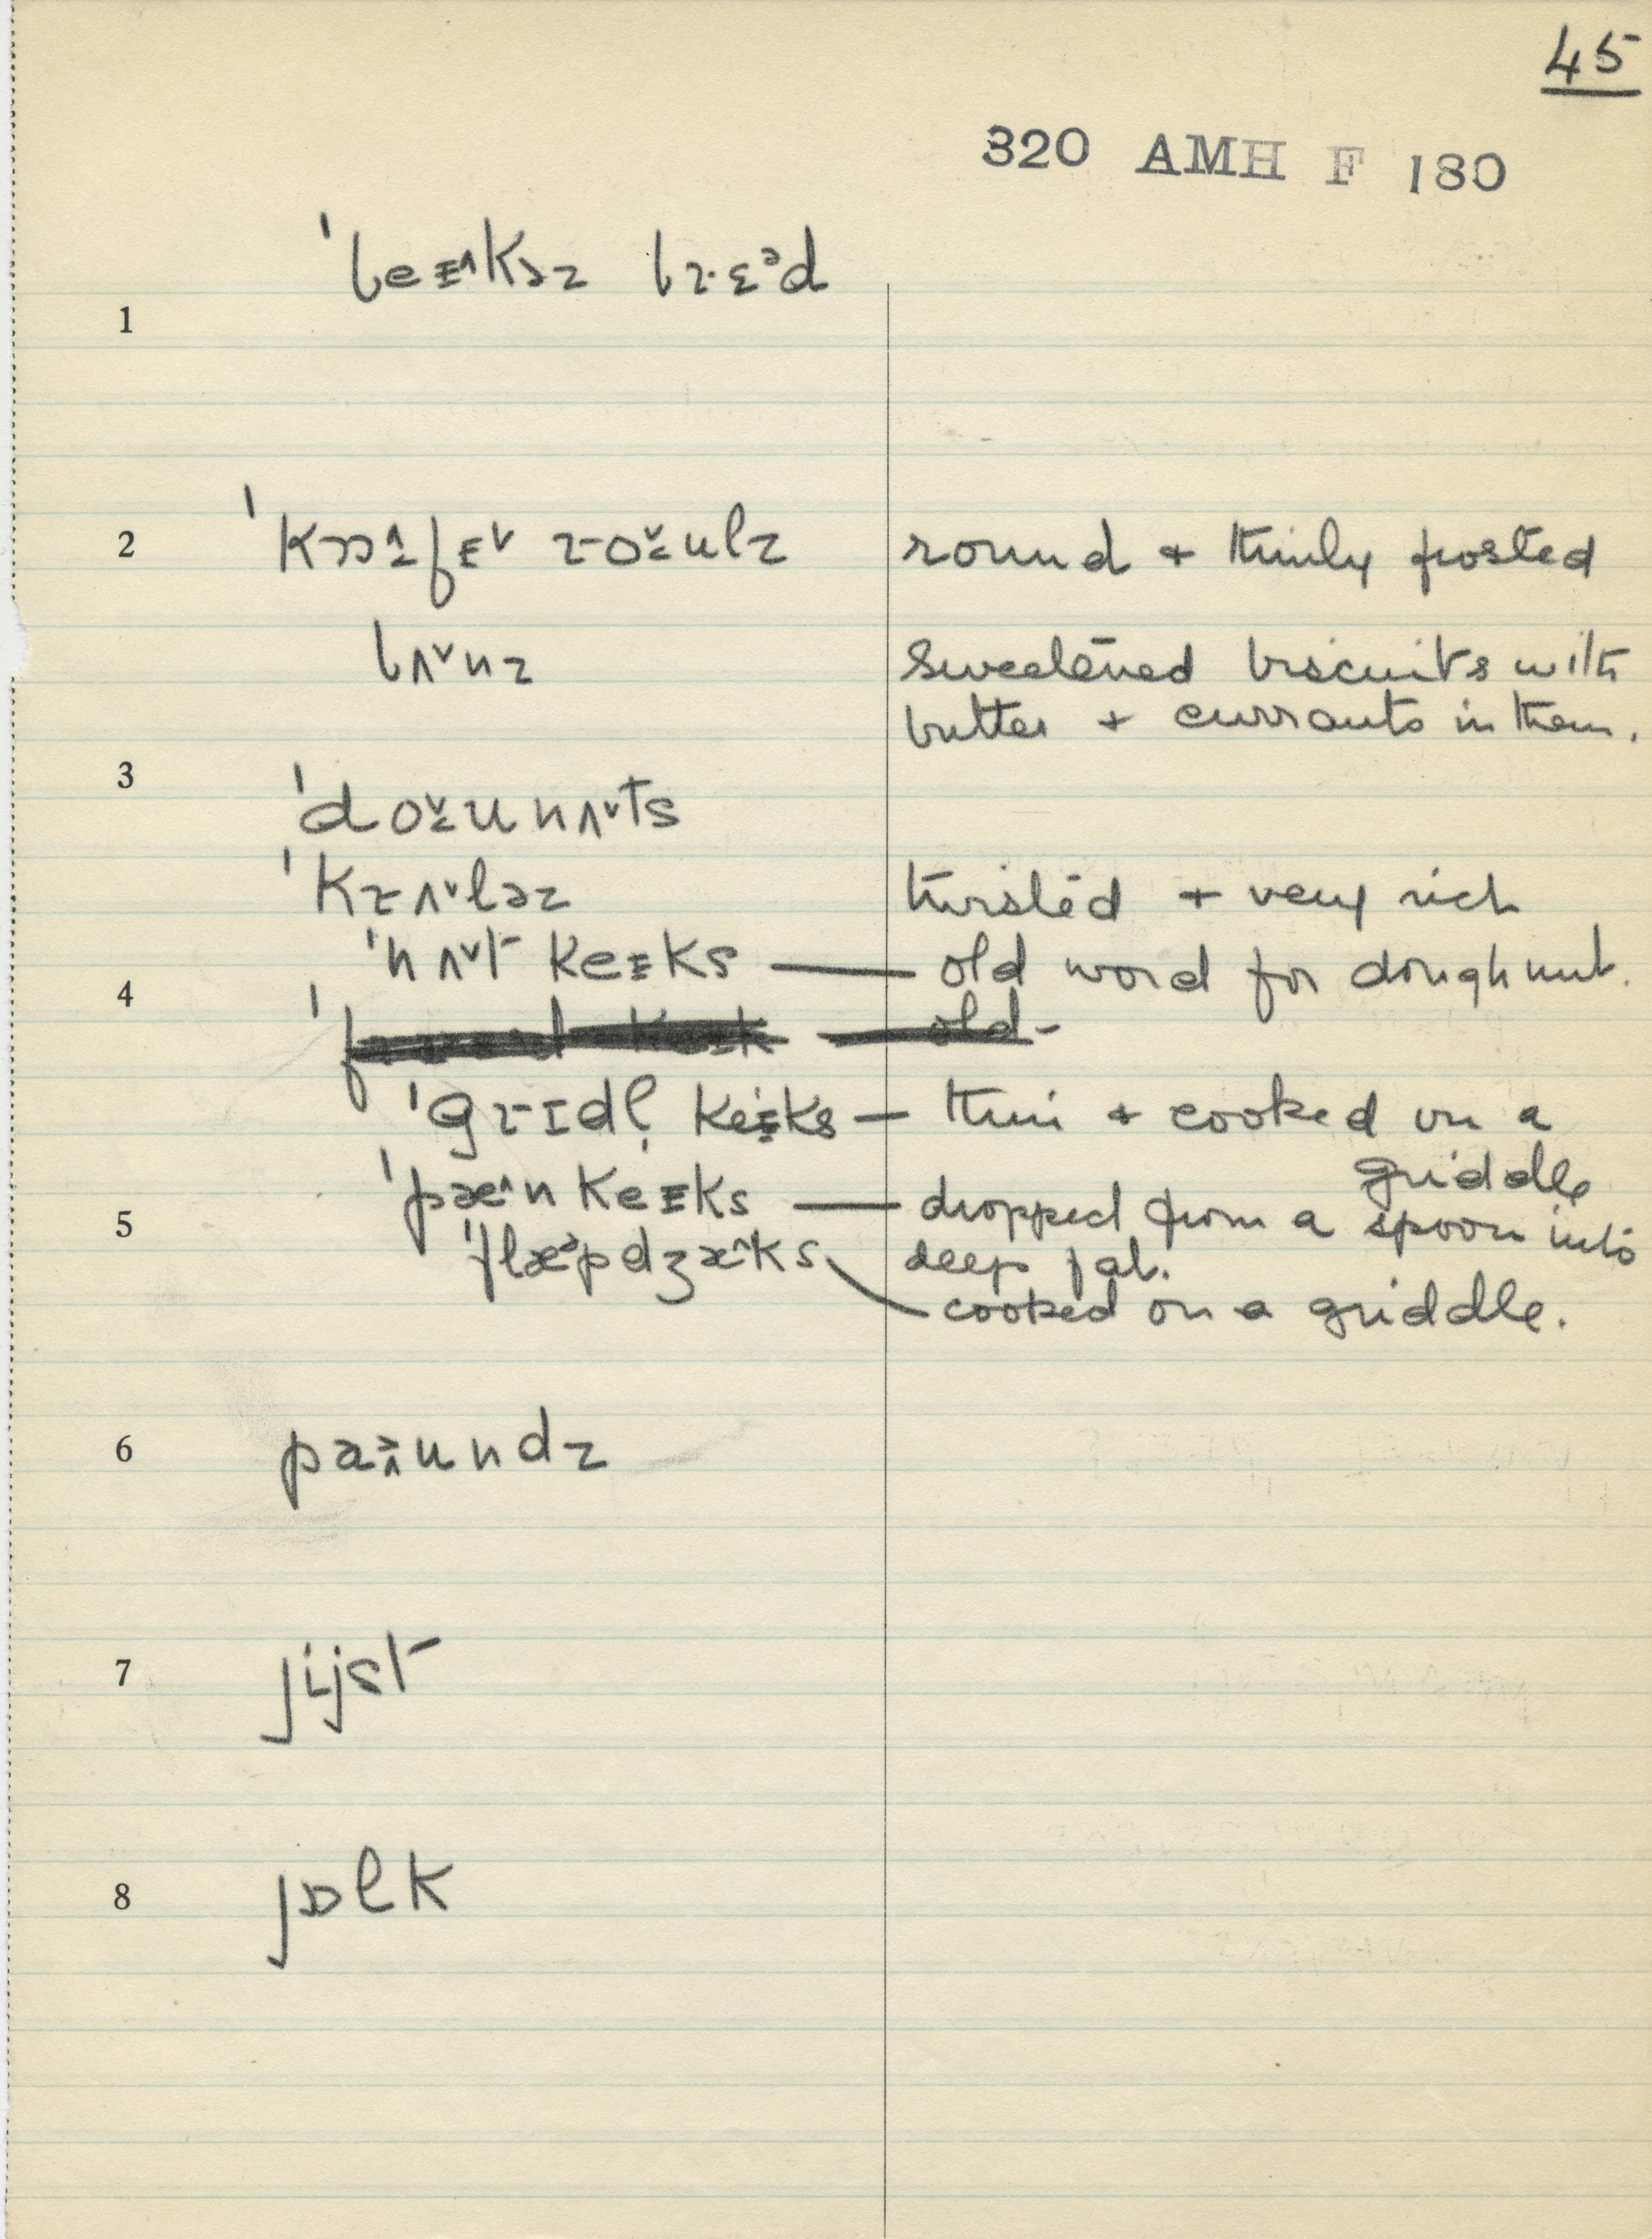 45
320 AMH F 180
ˈbeɪ^kəz brɛᵊd
1
2 ˈkɒ^fɪ˅ ro˅ulz round + thinly frosted
bʌ˅nz sweetened biscuits with
butter + currants in them.
3
ˈdo˅unʌ˅ts
ˈkrʌ˅ləz twisted + very rich
ˈnʌ˅t keɪks — old word for doughnut.
4
old-
ˈgrɪdl̩ keɪks — thin + cooked on a
griddle
ˈpæ^nkeɪks — dropped from a spoon into
5
ˈflæ˃pdʒæ^ks deep fat.
cooked on a griddle.
6 paundz
7 jijst
8 jɒlk